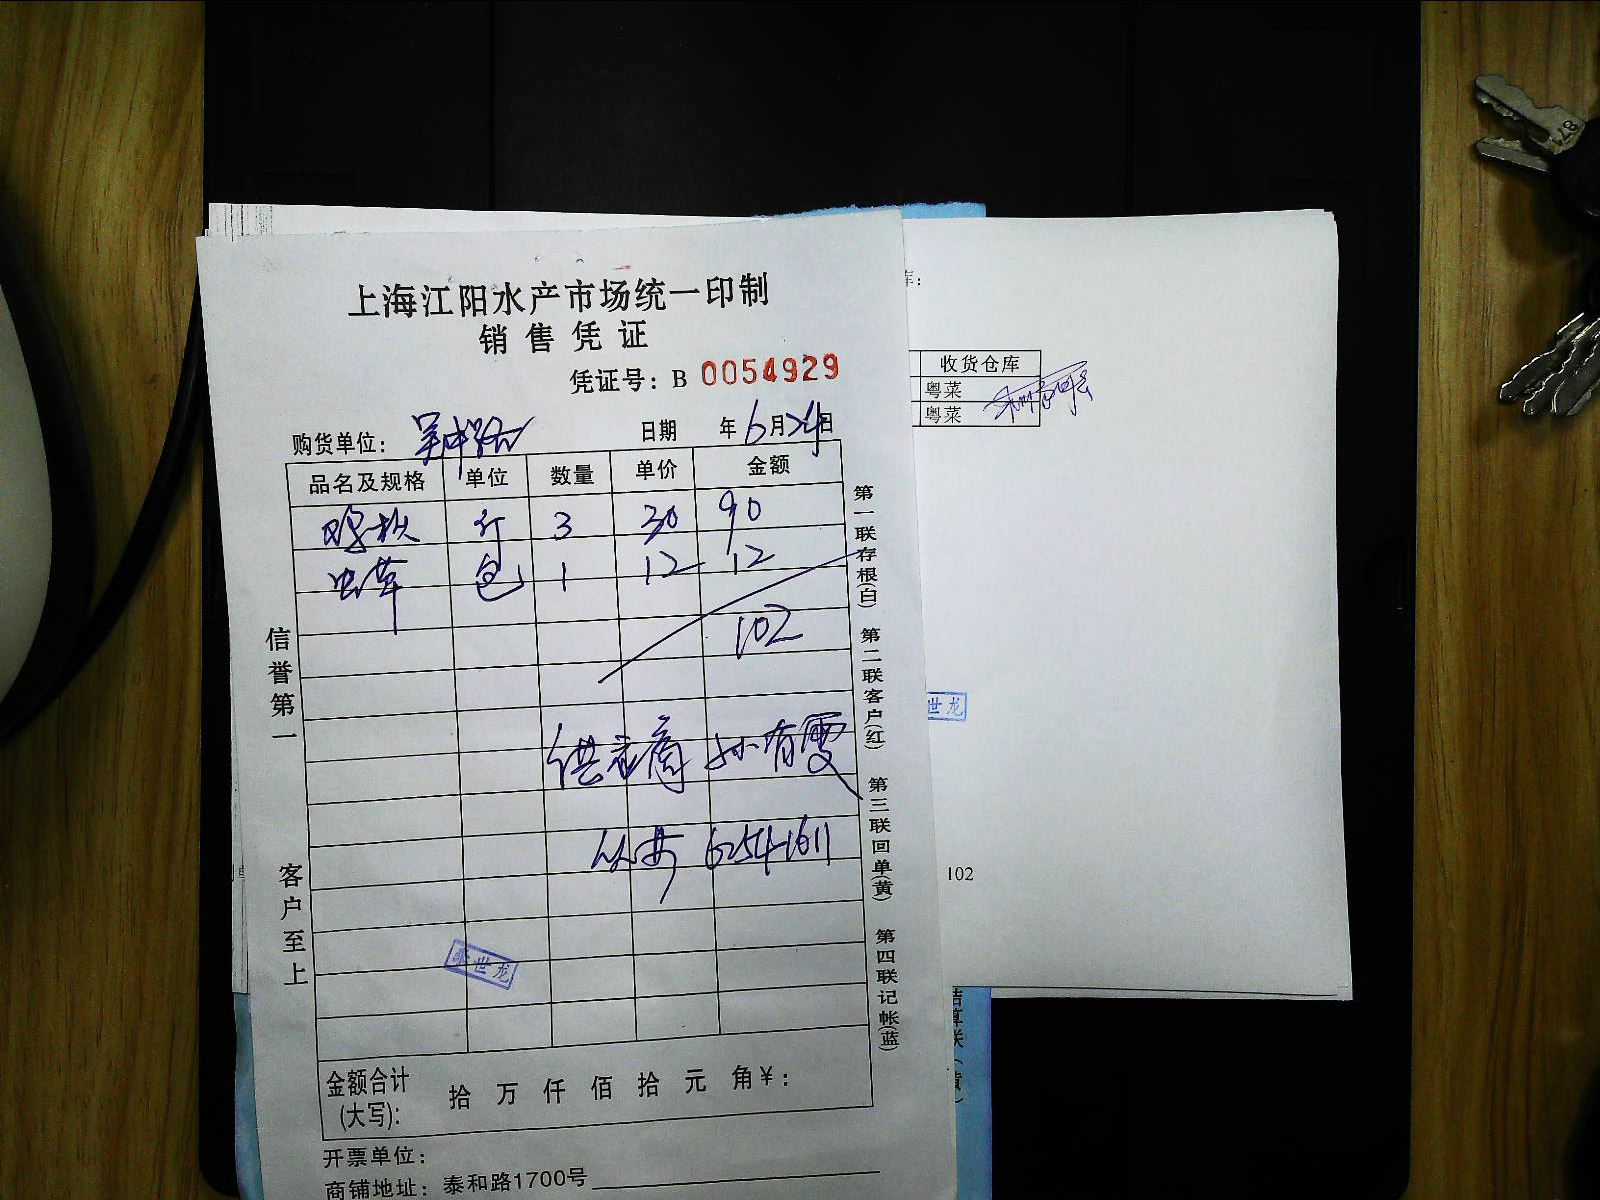 上海江阳水产市场统一印制
销售凭证
凭证号：B 0054929
购货单位：吴中路 日期 年6月24日
品名及规格 单位 数量 单价 金额
斤 3 30 90
虫草 包 1 12 12
102
供应商 孙有雯
62541611
信誉第一
客户至上
第一联存根(白)
第二联客户(红)
第三联回单(黄)
第四联记帐(蓝)
世龙
金额合计(大写)： 拾 万 仟 佰 拾 元 角 ¥：
开票单位：
商铺地址：泰和路1700号
库：
收货仓库
粤菜
粤菜
世龙
102
结算联（黄）
87